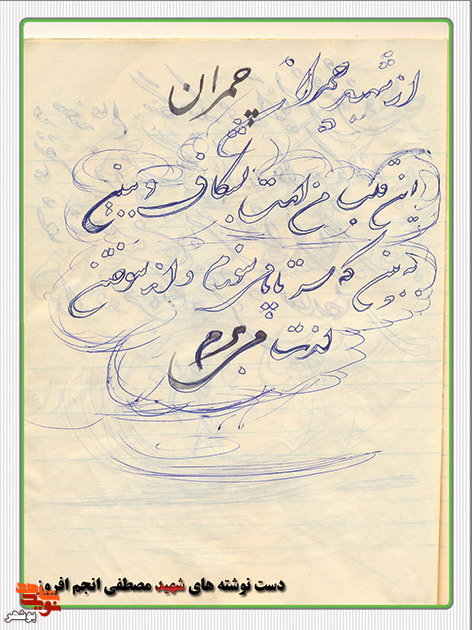 از شهید چمران چمران
این قلب من است بشکاف و ببین
ببین که سر تا پا می سوزم و از سوختن
لذت می برم
دست نوشته های شهید مصطفی انجم افروز
نوید شاهد
بوشهر